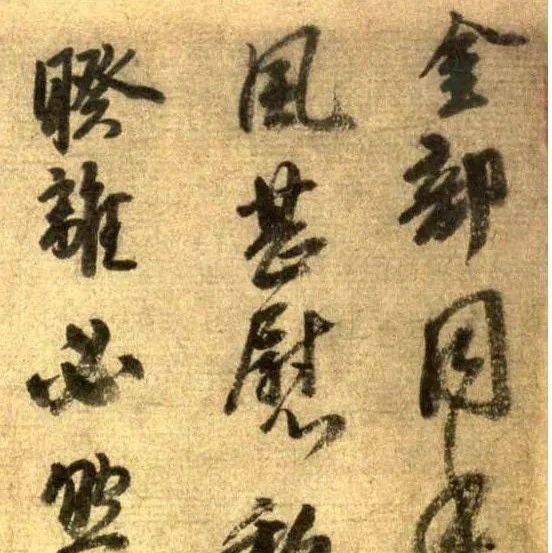 金部同年
風甚慰
睽離必